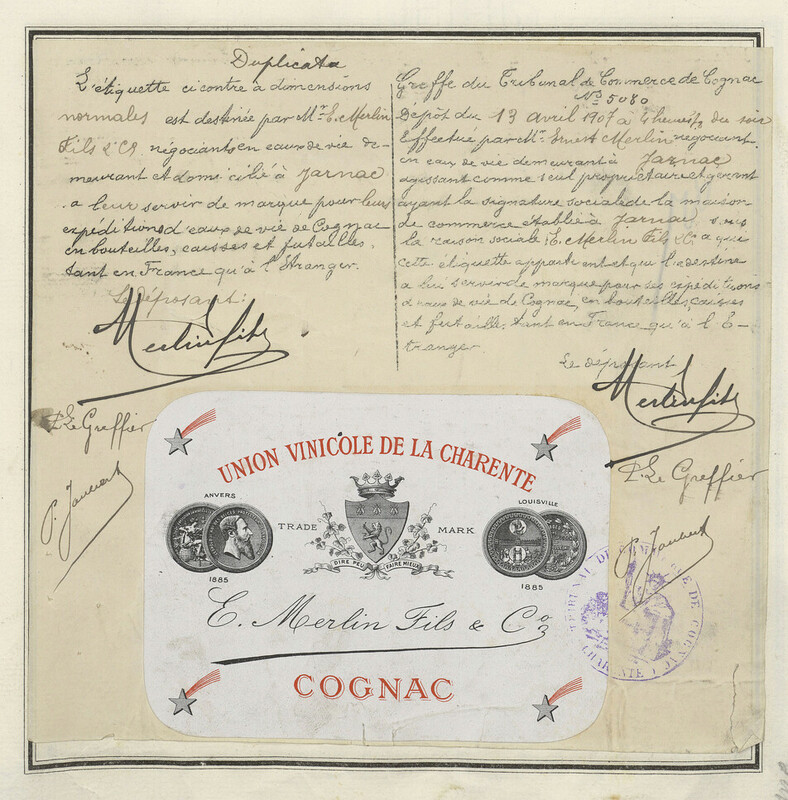 Duplicata
L'étiquette ci contre à dimensions
normales est destinée par Mr. E. Merlin
Fils & Co, négociants en eaux de vie de-
meurant et domicilié à Jarnac
a leur servir de marque pour leurs
expéditions d'eaux de vie de Cognac
en bouteilles, caisses et futailles,
tant en France qu'à l'Etranger.
Le déposant:
Merlin fils
P. Le Greffier
P. Jaubert
Greffe du Tribunal de Commerce de Cognac
No 5080
Dépôt du 13 avril 1907 à 4 heures du soir
Effectué par Mr. Ernest Merlin négociant
en eaux de vie demeurant à Jarnac
agissant comme seul propriétaire et gérant
ayant la signature sociale de la maison
de commerce établie à Jarnac sous
la raison sociale E. Merlin Fils & Co. a qui
cette étiquette appartient et qui la destine
a lui servir de marque pour ses expéditions
d'eaux de vie de Cognac, en bouteilles, caisses
et futaille, tant en France qu'à l'E-
tranger.
Le déposant
Merlin fils
P. Le Greffier
P. Jaubert
UNION VINICOLE DE LA CHARENTE
ANVERS
1885
TRADE MARK
DIRE PEU FAIRE MIEUX
LOUISVILLE
1885
E. Merlin Fils & Co
COGNAC
TRIBUNAL DE COMMERCE DE COGNAC
CHARENTE